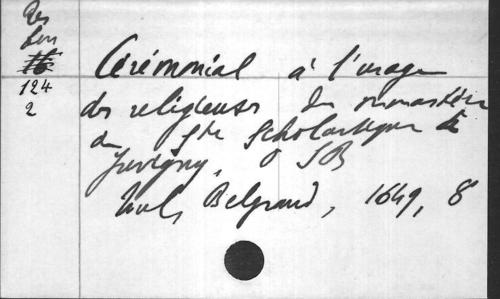 Res
124
2
Cérémonial à l'usage
des religieuses du monastère
de Ste Scholastique de
Juvigny, O SB
Toul, Belgrand, 1649, 8°